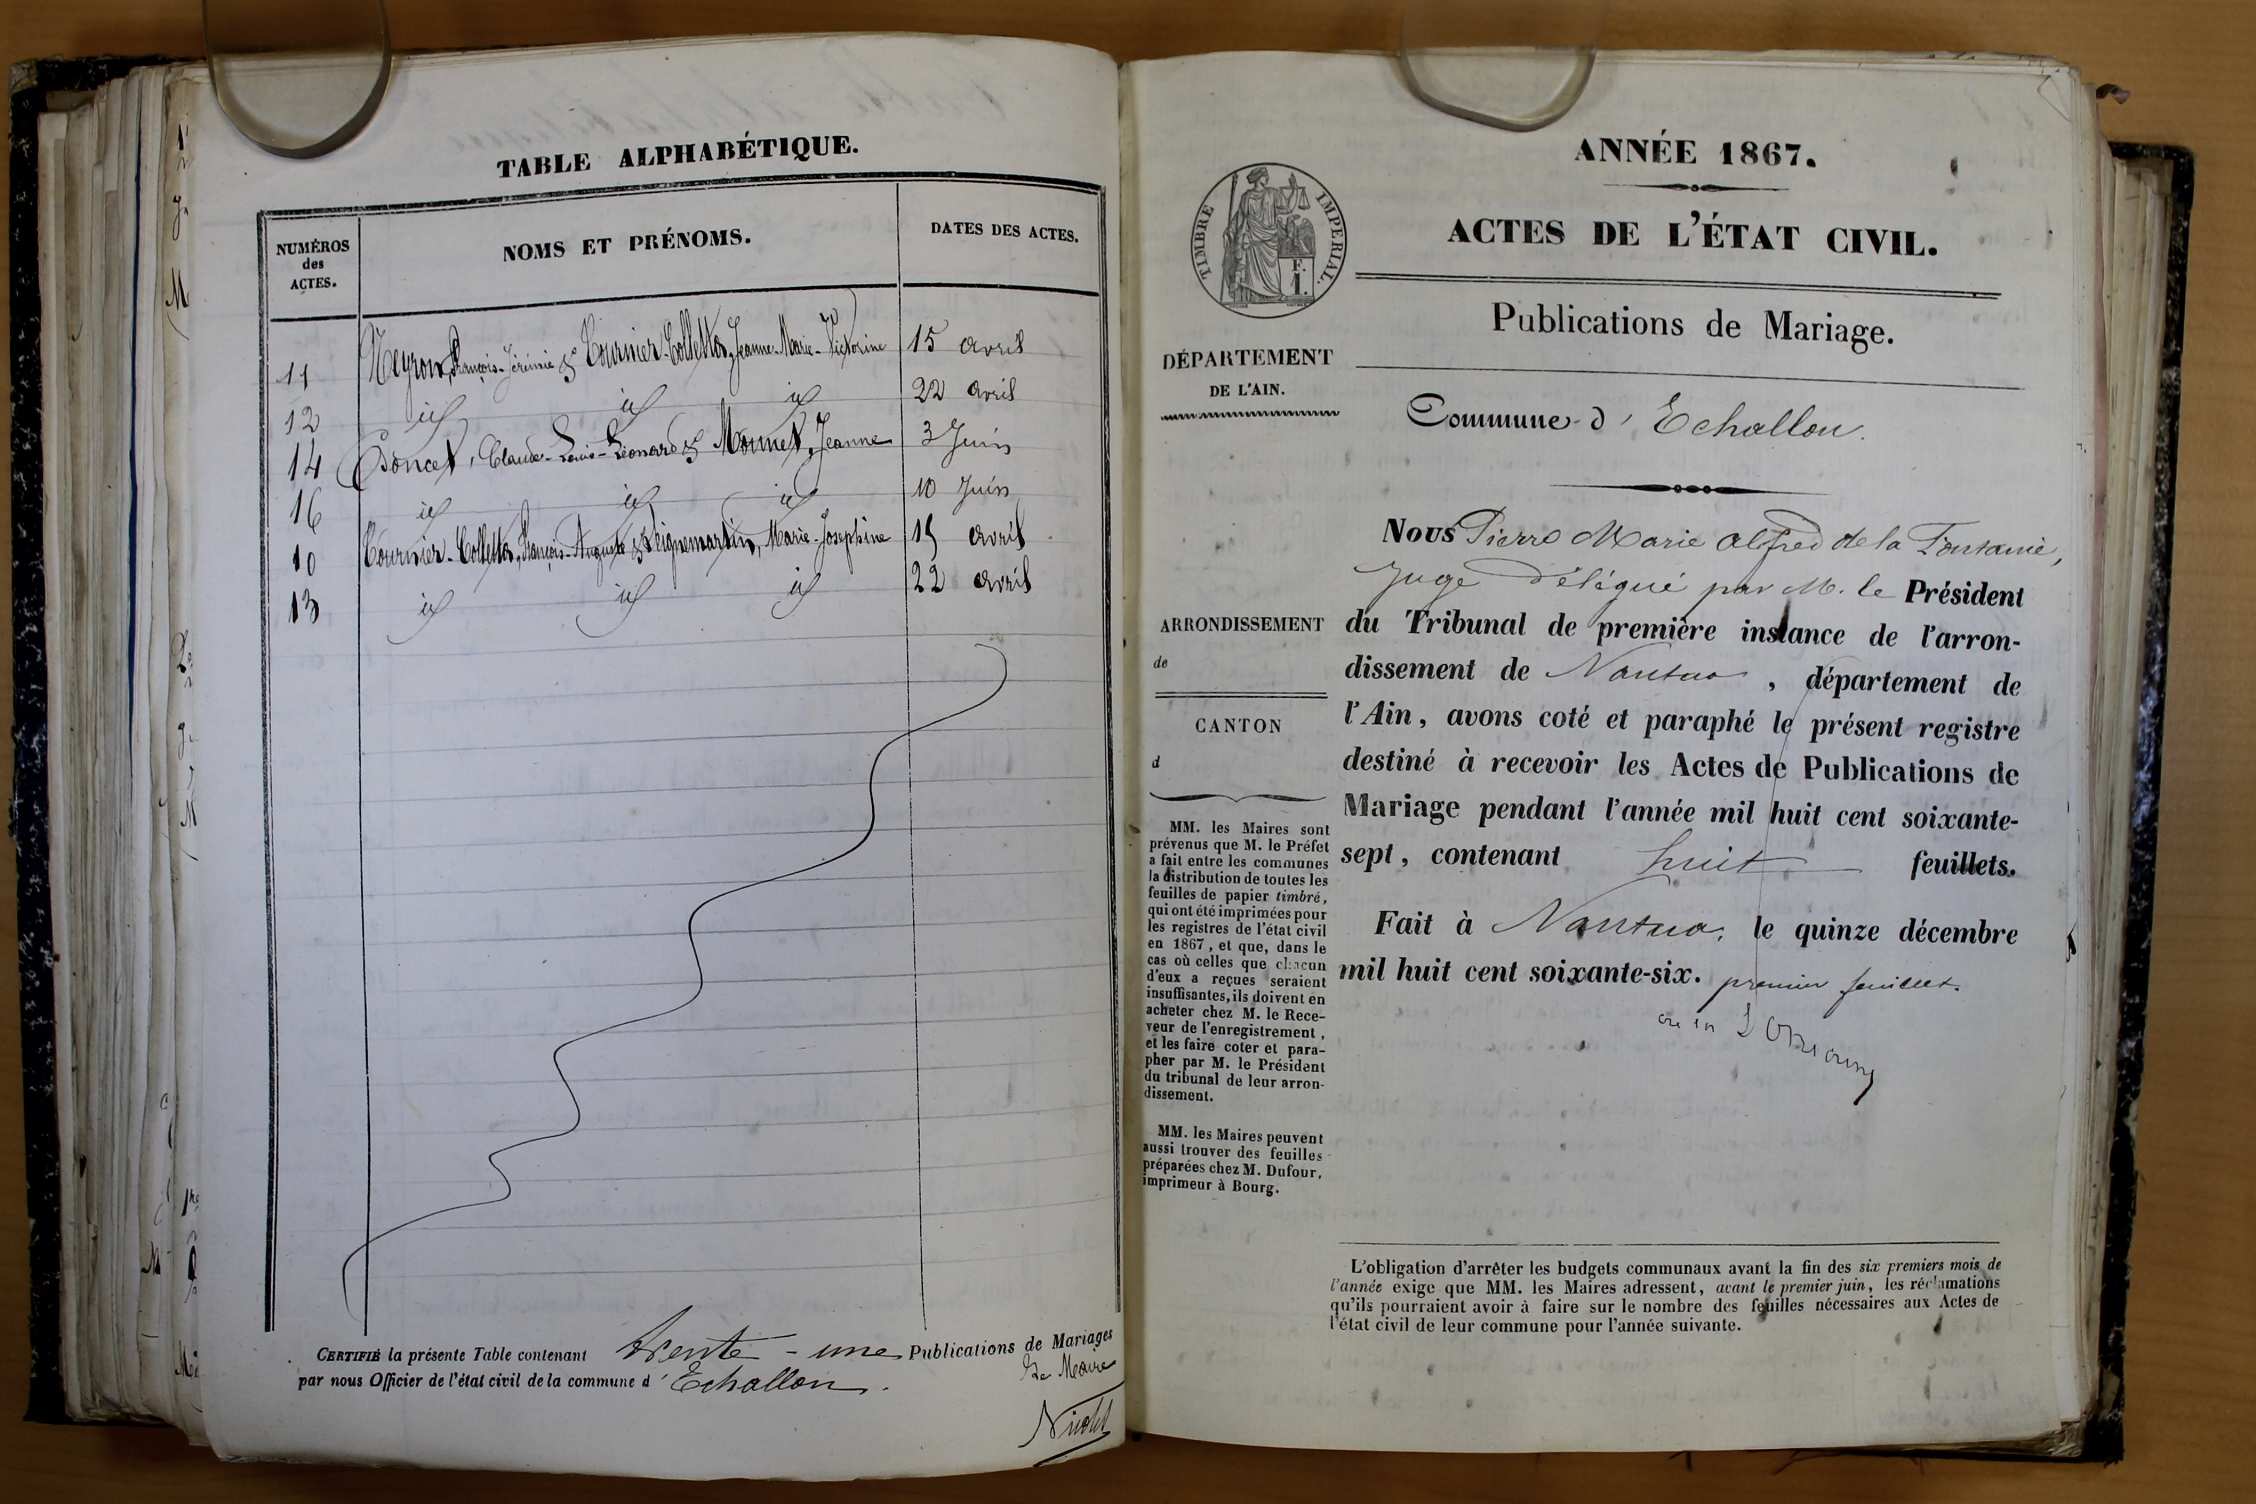 TABLE ALPHABÉTIQUE.
NUMÉROS
des
ACTES.
NOMS ET PRÉNOMS.
DATES DES ACTES.
11 Neyron, François-Jérémie & Tournier-Colletta, Jeanne-Marie-Victorine 15 avril
12 id id id 22 avril
14 Poncet, Claude-Louis-Léonard & Monnet, Jeanne 3 Juin
16 id id id 10 Juin
10 Tournier-Colletta, François-Auguste & Peignemartin, Marie-Josephine 15 avril
13 id id id 22 avril
CERTIFIÉ la présente Table contenant trente-une Publications de Mariages
par nous Officier de l'état civil de la commune d'Echallon.
Le Maire
Nicolet
ANNÉE 1867.
ACTES DE L'ÉTAT CIVIL.
TIMBRE IMPERIAL.
F.
1.
Publications de Mariage.
DÉPARTEMENT
DE L'AIN.
Commune d'Echallon.
Nous Pierre Marie Alfred de la
Juge délégué par M. le Président
du Tribunal de première instance de l'arron-
dissement de Nantua, département de
l'Ain, avons coté et paraphé le présent registre
destiné à recevoir les Actes de Publications de
Mariage pendant l'année mil huit cent soixante-
sept, contenant huit feuillets.
Fait à Nantua, le quinze décembre
mil huit cent soixante-six. premier feuillet.
ARRONDISSEMENT
de
CANTON
d
MM. les Maires sont
prévenus que M. le Préfet
a fait entre les communes
la distribution de toutes les
feuilles de papier timbré,
qui ont été imprimées pour
les registres de l'état civil
en 1867, et que, dans le
cas où celles que chacun
d'eux a reçues seraient
insuffisantes, ils doivent en
acheter chez M. le Rece-
veur de l'enregistrement,
et les faire coter et para-
pher par M. le Président
du tribunal de leur arron-
dissement.
MM. les Maires peuvent
aussi trouver des feuilles
préparées chez M. Dufour,
imprimeur à Bourg.
L'obligation d'arrêter les budgets communaux avant la fin des six premiers mois de
l'année exige que MM. les Maires adressent, avant le premier juin, les réclamations
qu'ils pourraient avoir à faire sur le nombre des feuilles nécessaires aux Actes de
l'état civil de leur commune pour l'année suivante.